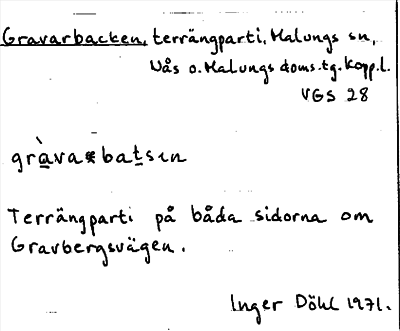 Gravarbacken, terrängparti, Malungs sn,
Nås o. Malungs doms. tg. Kopp. l.
VGS 28
gràva batsın
Terrängparti på båda sidorna om
Gravbergsvägen.
Inger Döhl 1971.